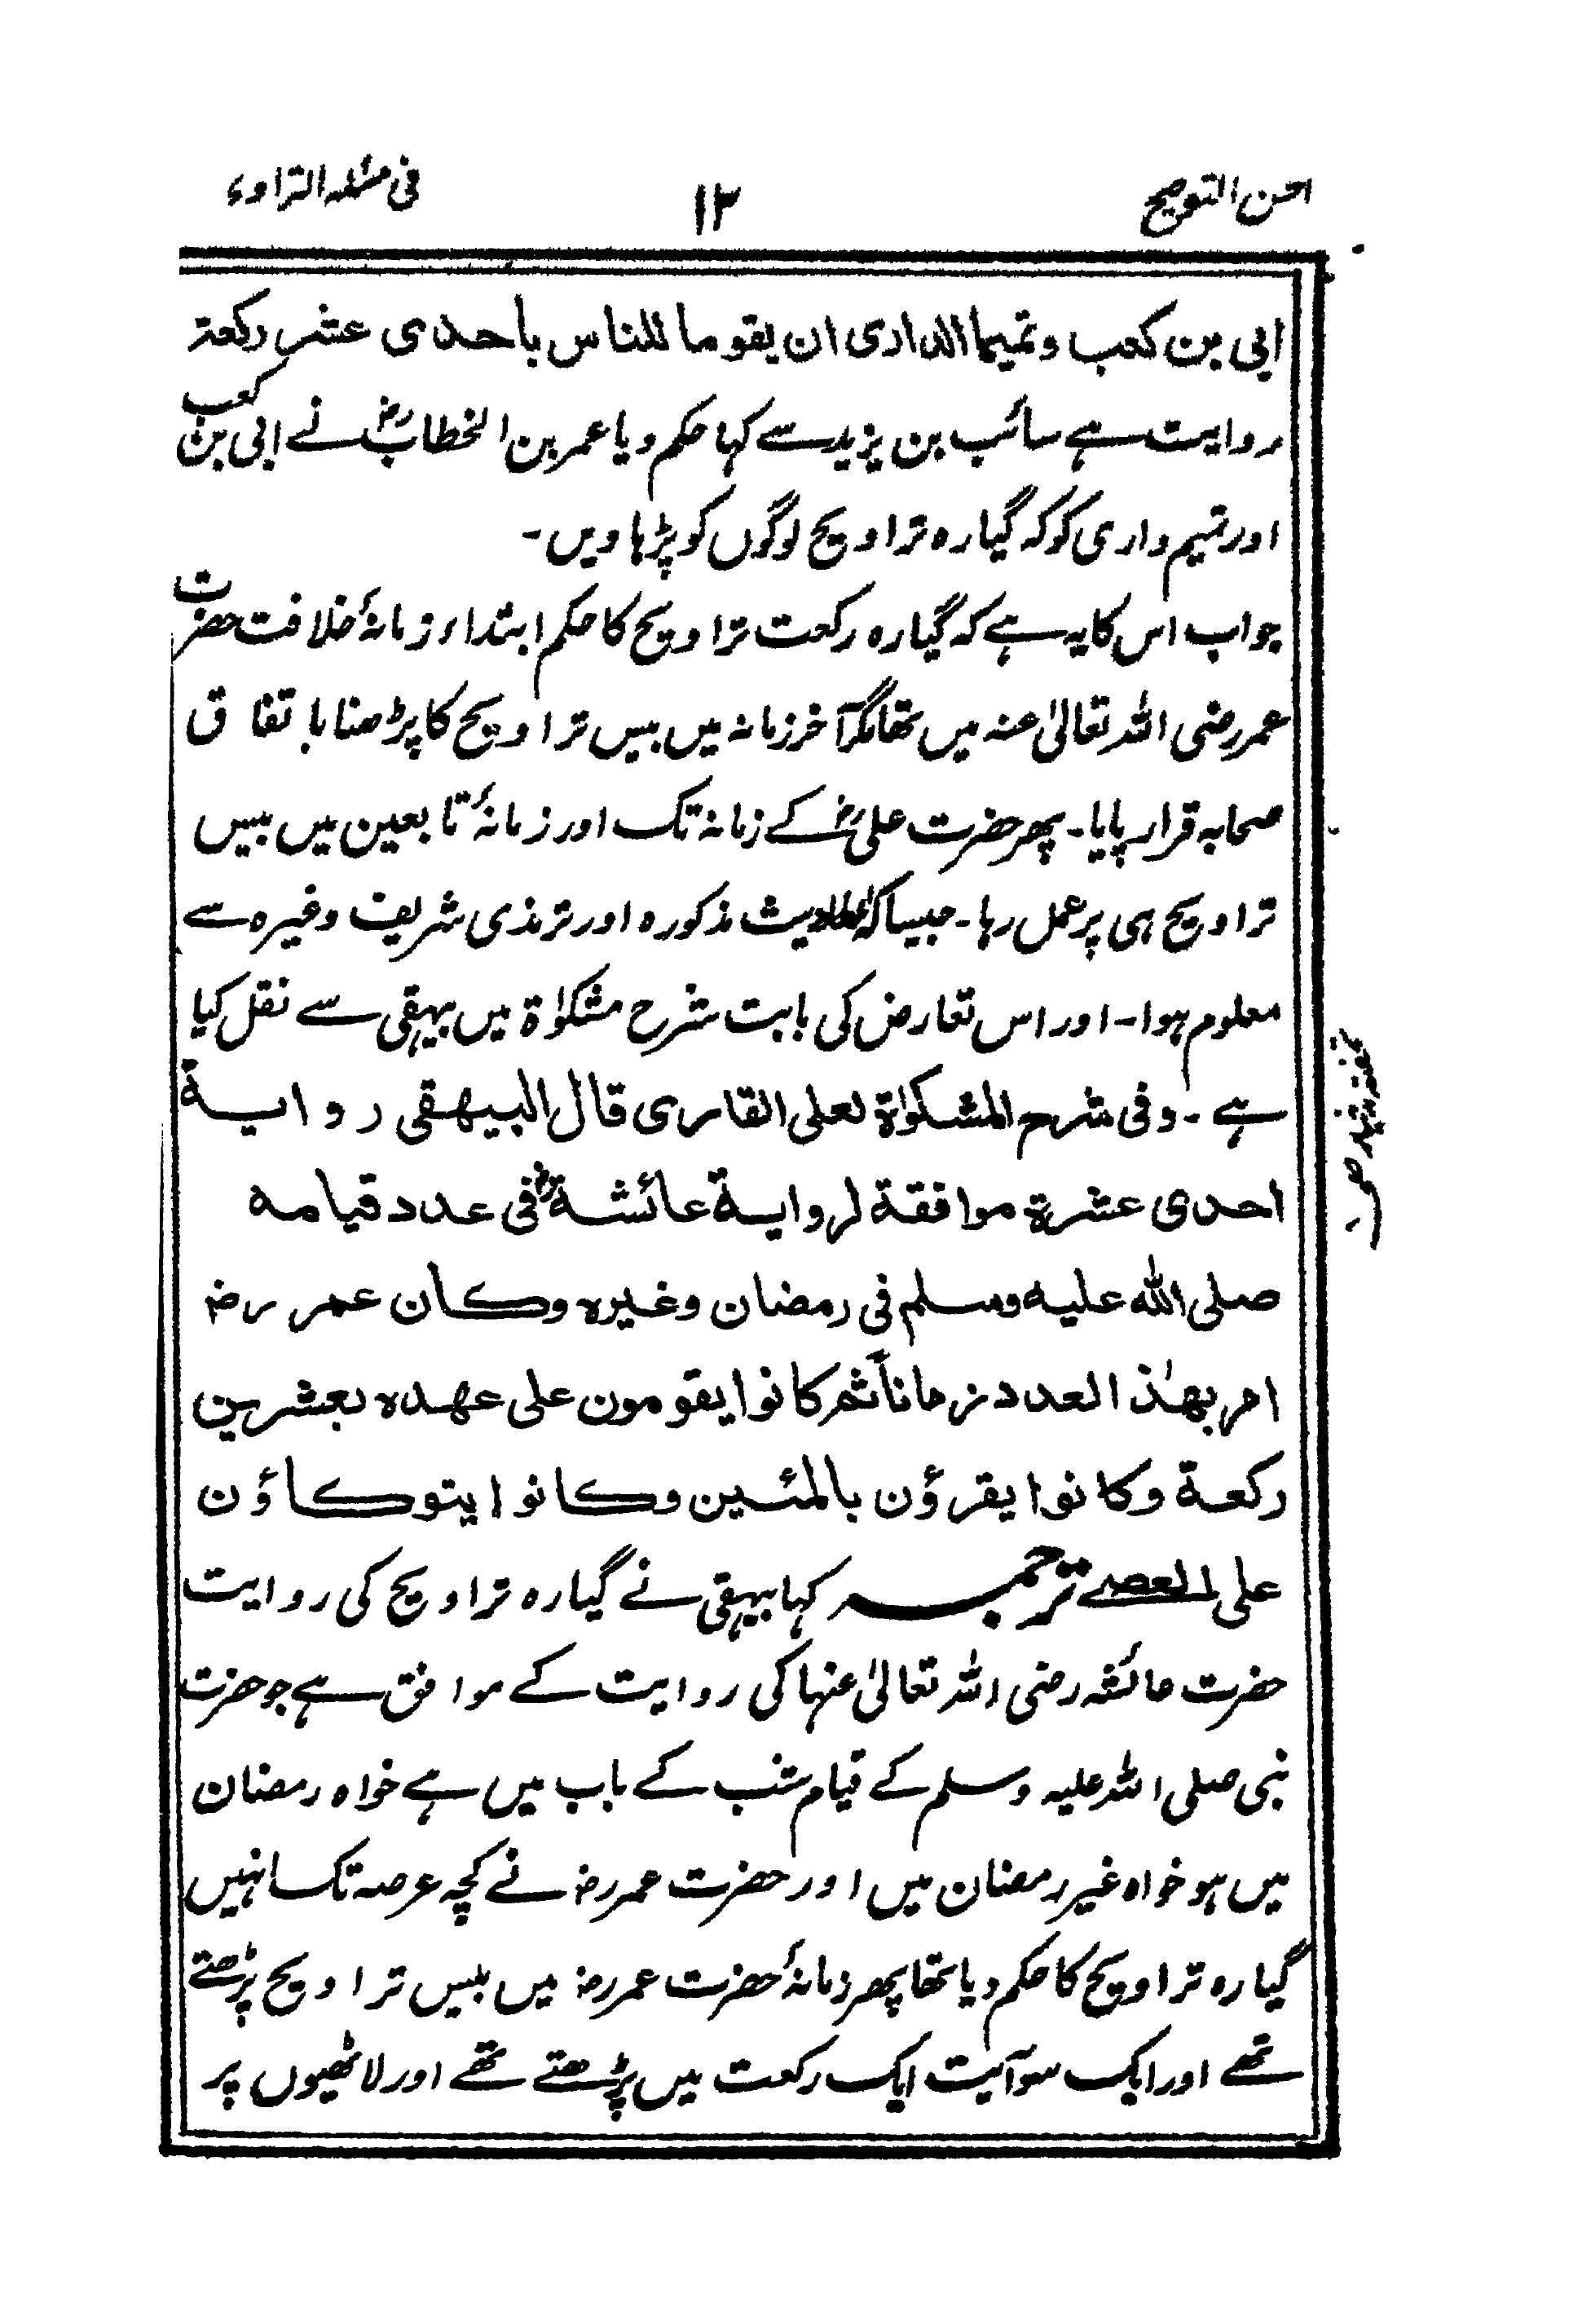 احسن التوضیح ۱۲ فی مسئلہ التراویح
ابی بن کعب و تمیما الداری ان یقوما للناس باحدی عشر رکعۃ
روایت ہے سائب بن یزید سے کہا حکم دیا عمر بن الخطابؓ نے ابی بن کعب
اور تمیم داری کو کہ گیارہ تراویح لوگوں کو پڑہاویں۔
جواب اس کا یہ ہے کہ گیارہ رکعت تراویح کا حکم ابتداء زمانۂ خلافت حضرت
عمر رضی اللہ تعالیٰ عنہ میں تھا مگر آخر زمانہ میں بیس تراویح کا پڑھنا باتفاق
صحابہ قرار پایا۔ پھر حضرت علیؓ کے زمانہ تک اور زمانۂ تابعین میں بیس
تراویح ہی پر عمل رہا۔ جیسا کہ احادیث مذکورہ اور ترمذی شریف وغیرہ سے
معلوم ہوا۔ اور اس تعارض کی بابت شرح مشکوٰۃ میں بیہقی سے نقل کیا
ہے۔ وفی شرح المشکوٰۃ لعلی القاری قال البیھقی روایۃ
احدی عشرۃ موافقۃ لروایۃ عائشۃؓ فی عدد قیامہ
صلی اللہ علیہ وسلم فی رمضان وغیرہ وکان عمر رض
امر بھٰذ العدد زماناً ثم کانوا یقومون علی عھدہ بعشرین
رکعۃ وکانوا یقرؤن بالمئین وکانوا یتوکاؤن
علی العصے ترجمہ کہا بیہقی نے گیارہ تراویح کی روایت
حضرت عائشہ رضی اللہ تعالیٰ عنہا کی روایت کے موافق ہے جو حضرت
نبی صلی اللہ علیہ وسلم کے قیام شب کے باب میں ہے خواہ رمضان
میں ہو خواہ غیر رمضان میں اور حضرت عمر رض نے کچھ عرصہ تک انہیں
گیارہ تراویح کا حکم دیا تھا پھر زمانۂ حضرت عمر رض میں بیس تراویح پڑھتے
تھے اور ایک سو آیت ایک رکعت میں پڑھتے تھے اور لاٹھیوں پر